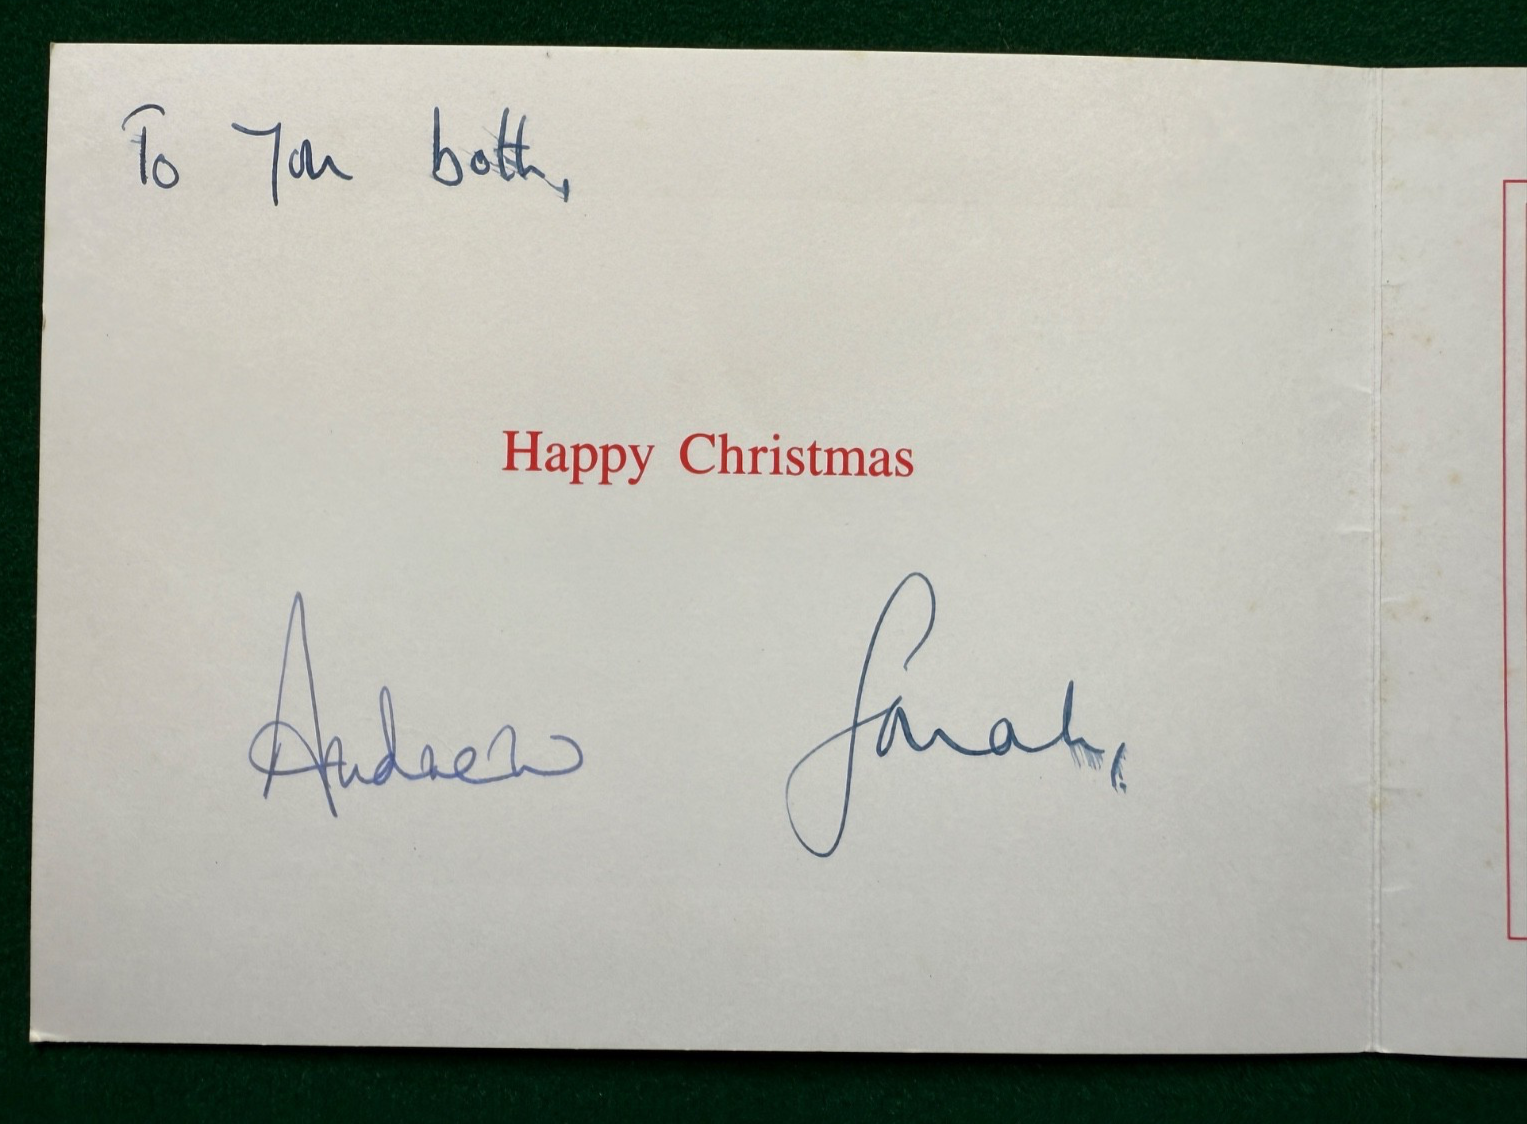 To You both,
Happy Christmas
Andrew Sarah,